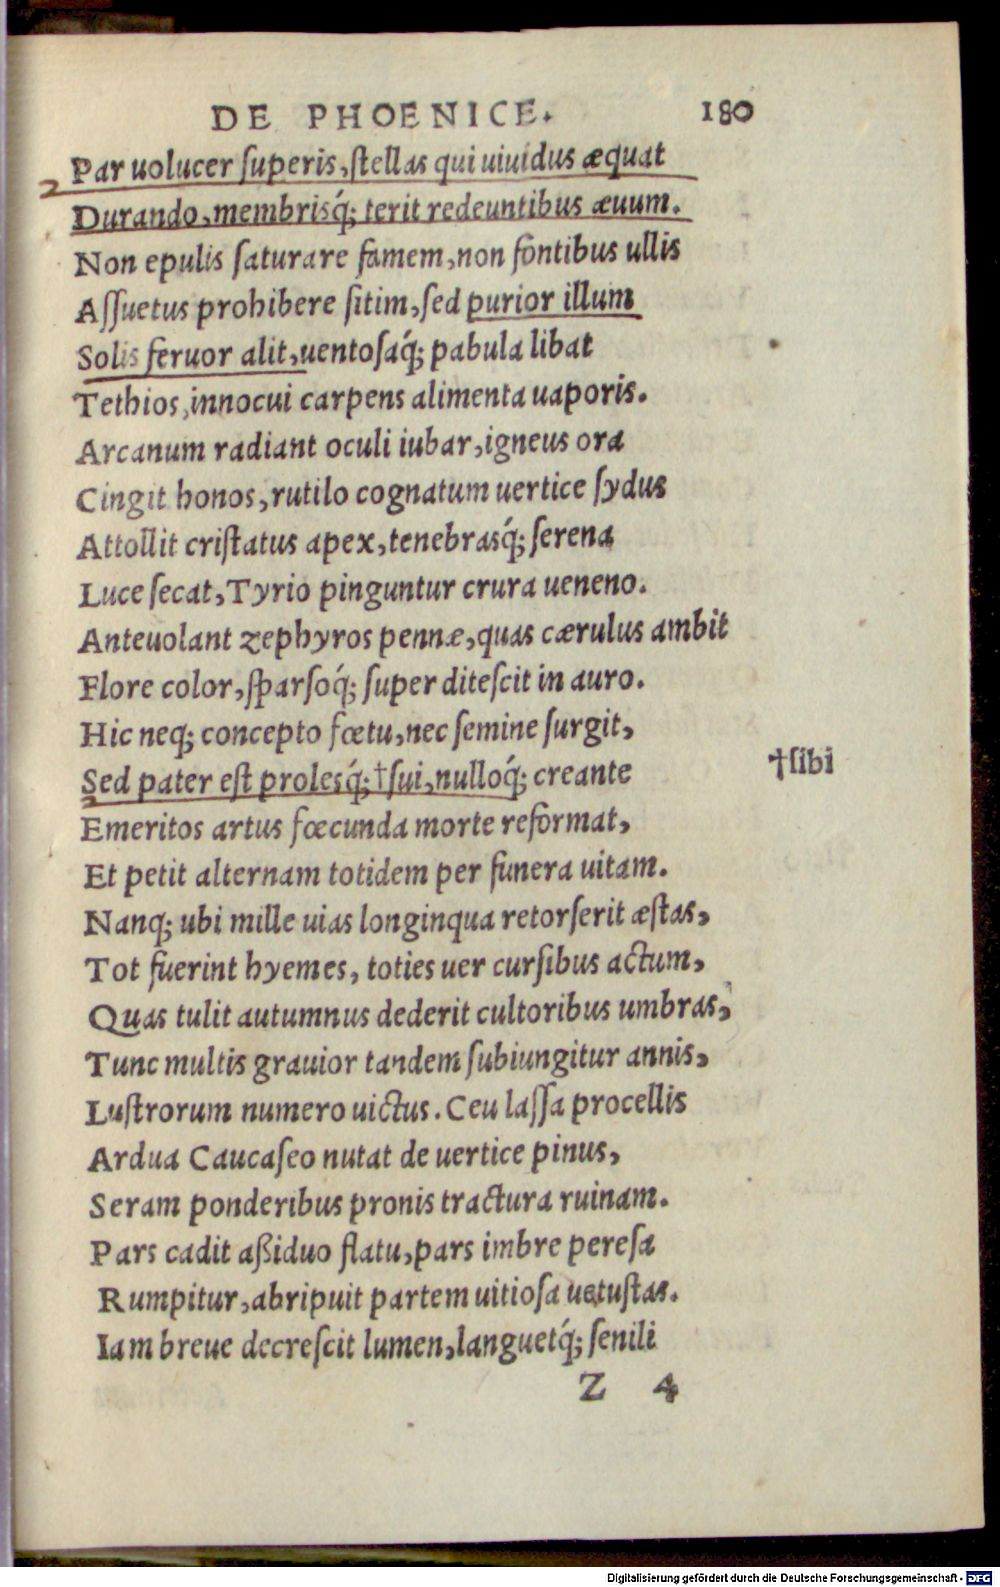 DE PHOENICE. 180
Par uolucer ſuperis, ſtellas qui uiuidus æquat
Durando, membrisq́; terit redeuntibus æuum.
Non epulis ſaturare famem, non fontibus ullis
Aſſuetus prohibere ſitim, ſed purior illum
Solis feruor alit, uentoſaq́; pabula libat
Tethios, innocui carpens alimenta uaporis.
Arcanum radiant oculi iubar, igneus ora
Cingit honos, rutilo cognatum uertice ſydus
Attollit criſtatus apex, tenebrasq́; ſerena
Luce ſecat, Tyrio pinguntur crura ueneno.
Anteuolant zephyros pennæ, quas cærulus ambit
Flore color, ſparſoq́; ſuper diteſcit in auro.
Hic neq; concepto fœtu, nec ſemine ſurgit,
Sed pater eſt prolesq́; †ſui, nulloq́; creante †ſibi
Emeritos artus fœcunda morte reformat,
Et petit alternam totidem per funera uitam.
Nanq; ubi mille uias longinqua retorſerit æſtas,
Tot fuerint hyemes, toties uer curſibus actum,
Quas tulit autumnus dederit cultoribus umbras,
Tunc multis grauior tandem ſubiungitur annis,
Luſtrorum numero uictus. Ceu laſſa procellis
Ardua Caucaſeo nutat de uertice pinus,
Seram ponderibus pronis tractura ruinam.
Pars cadit aßiduo flatu, pars imbre pereſa
Rumpitur, abripuit partem uitioſa uetuſtas.
Iam breue decreſcit lumen, languetq́; ſenili
Z 4
Digitalisierung gefördert durch die Deutsche Forschungsgemeinschaft - DFG